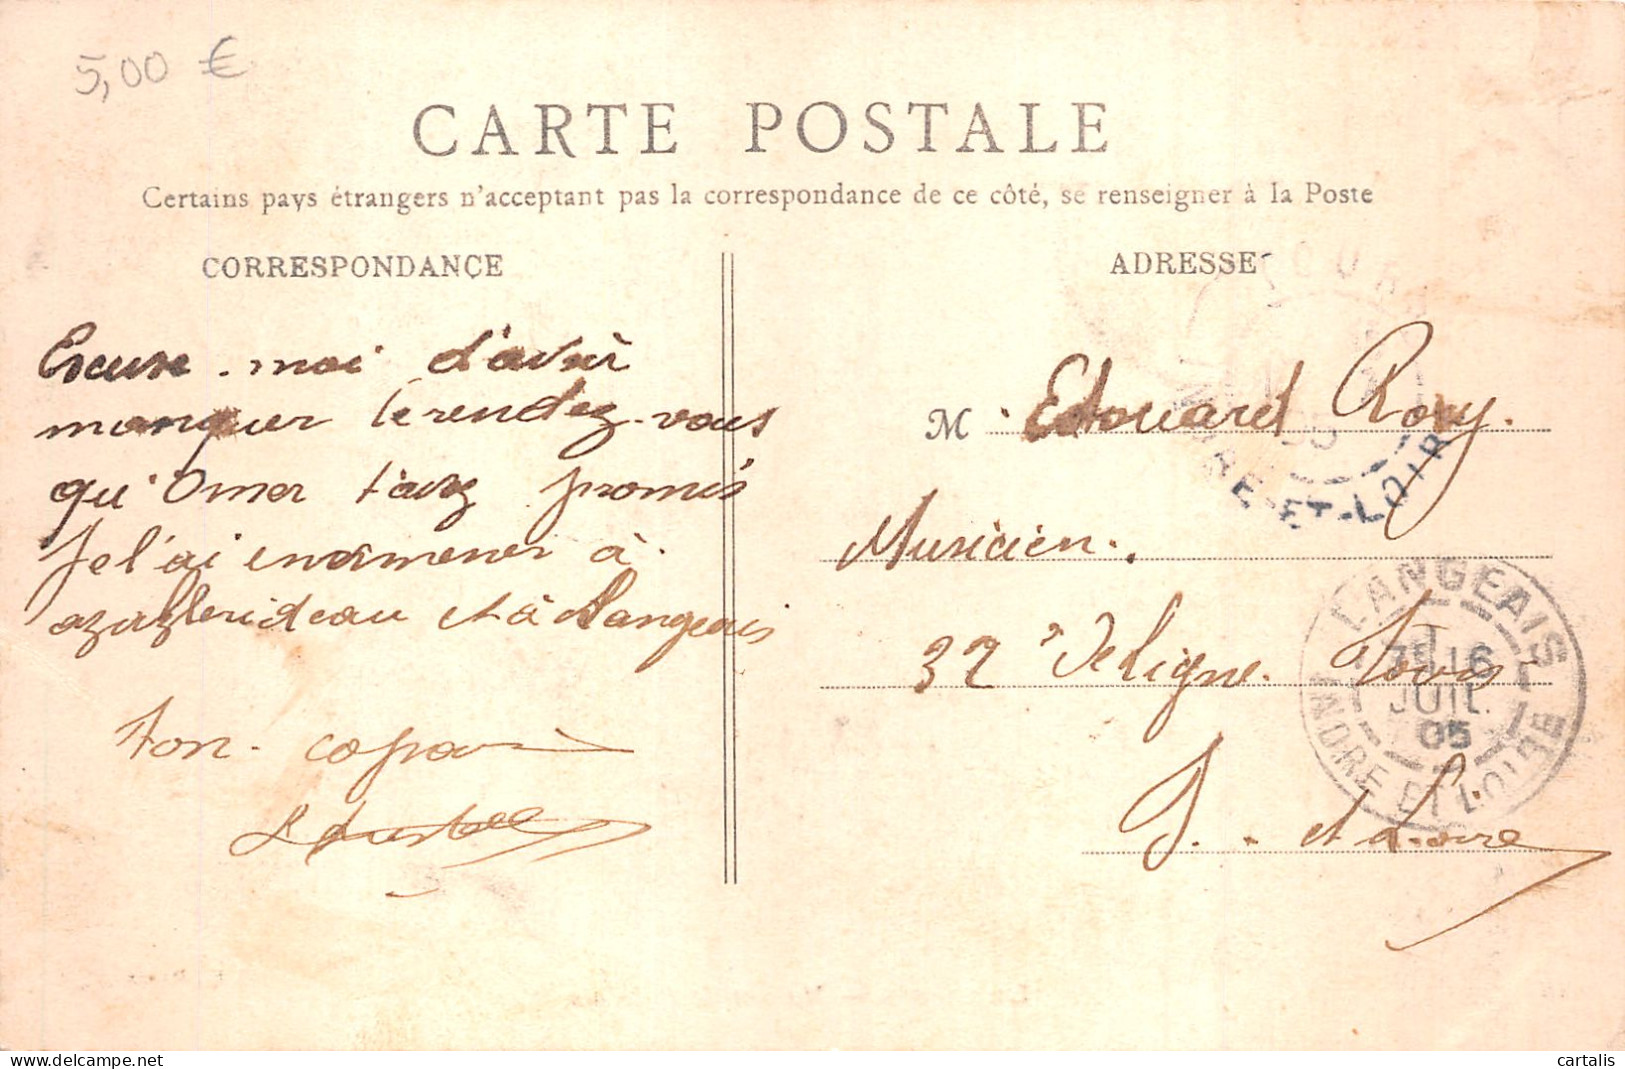 5,00 €
CARTE POSTALE
Certains pays étrangers n'acceptant pas la correspondance de ce côté, se renseigner à la Poste
CORRESPONDANCE
Excuse-moi d'avoir
manquer le rendez-vous
qu'Omer t'avez promis
Je l'ai enmmener à
azay le rideau et à Langeais
ton copain
ADRESSE
M. Edouard Roy.
Musicien.
32e de ligne. Tours
I. et Loire
TOURS
INDRE-ET-LOIRE
05
LANGEAIS
16
JUIL.
05
INDRE ET LOIRE
cartalis